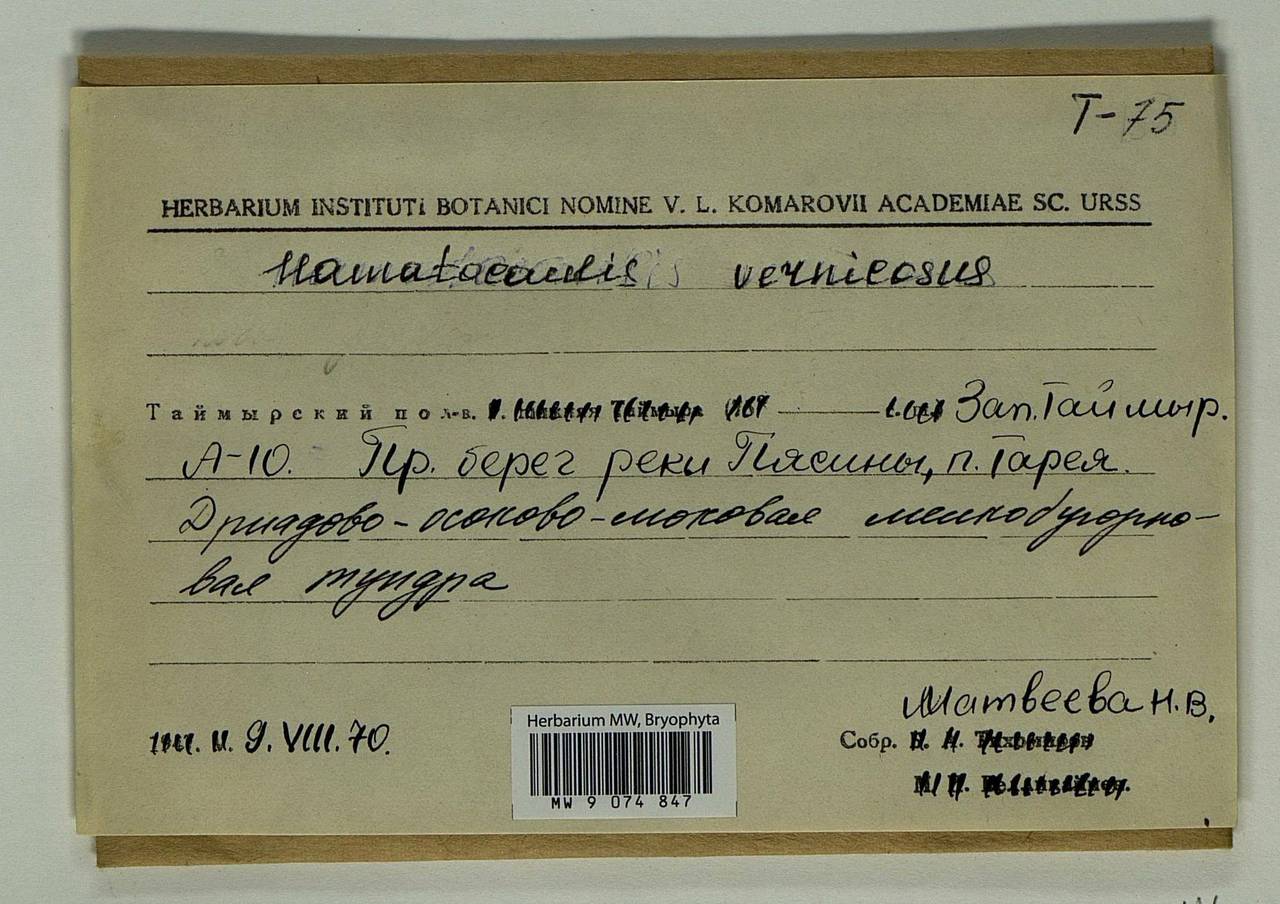 Т-75
HERBARIUM INSTITUTi BOTANICI NOMINE V. L. KOMAROVII ACADEMIAE SC. URSS
Hamatocaulis vernicosus
Таймырский пол-в. Зап. Таймыр.
А-10. Пр. берег реки Пясины, п. Тарея.
Дриадово-осоково-моховая мелкобугорко-
вая тундра
Матвеева Н.В.
9.VIII.70.
Собр.
Herbarium MW, Bryophyta
MW 9 074 847